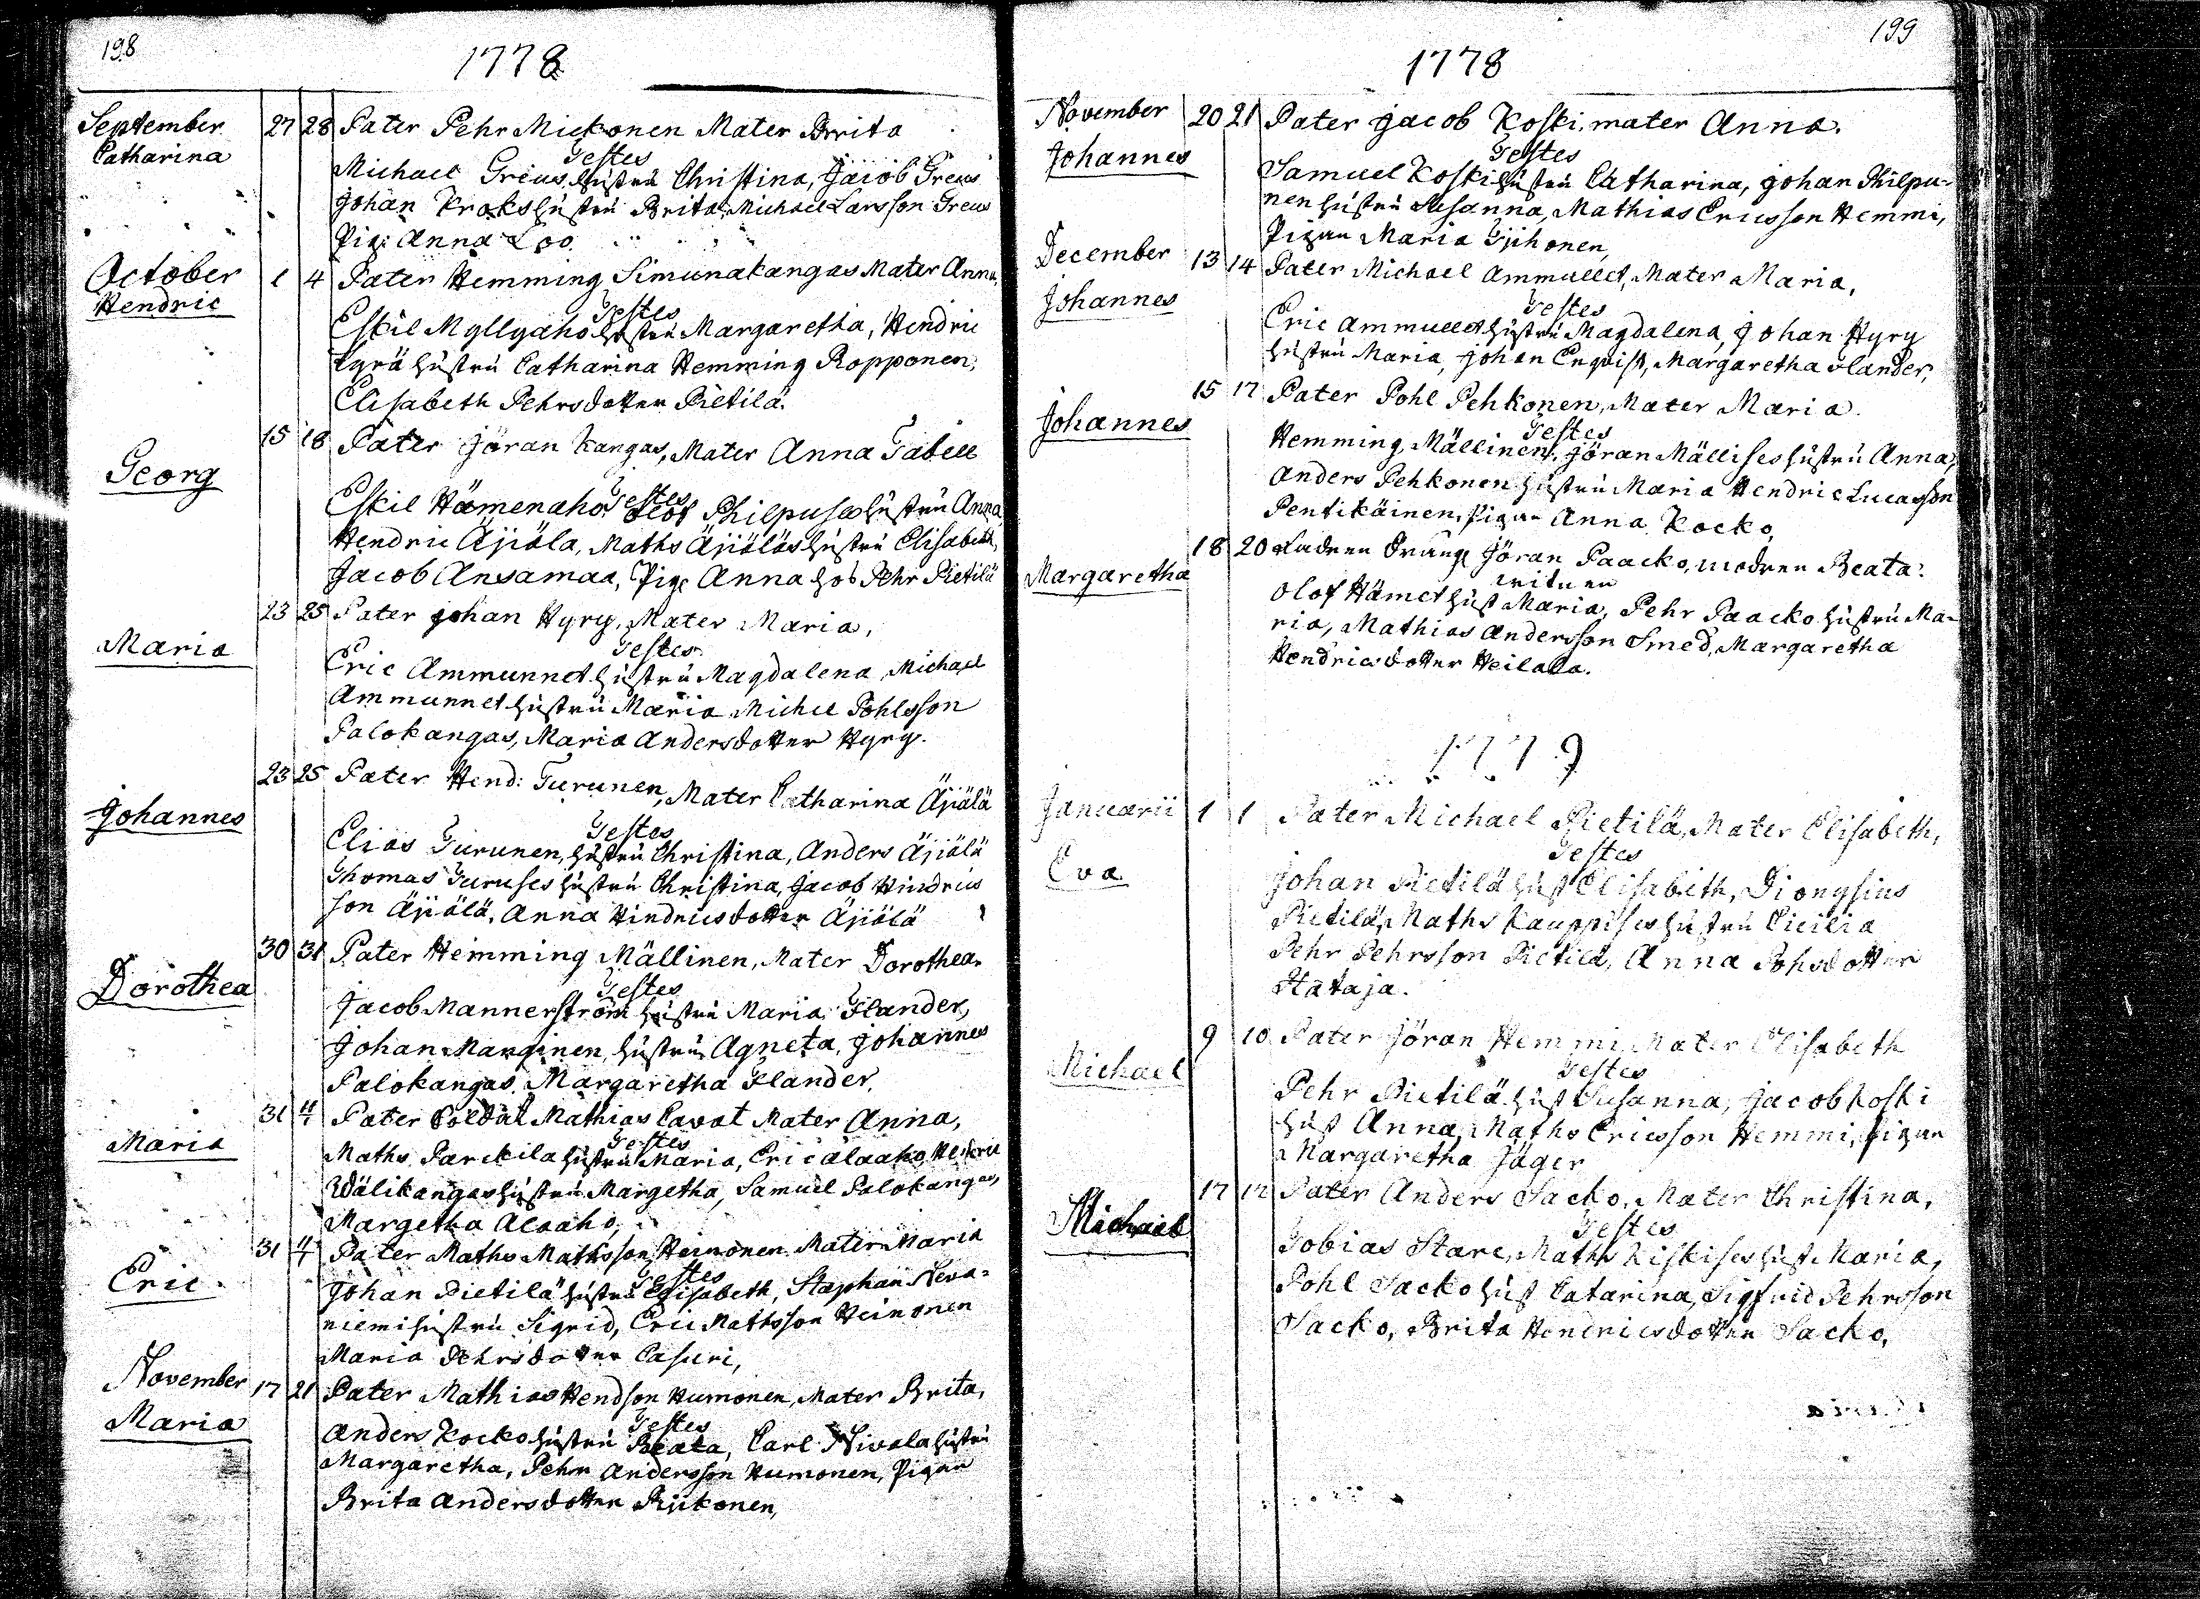 198
1778
September 27 28 Pater Pehr Mickonen Mater Brita
Catharina
Testes
Michael Greus hustru Christina, Jacob Greus
Johan Kroks hustru Brita, Michael Larsson Greus
Pig: Anna Loo
October 1 4 Pater Hemming Simunakangas Mater Anna,
Hendric
Testes
Eskil Myllyaho hustru Margaretha, Hendric
Kyrä hustru Catharina Hemming Ropponen,
Elisabeth Pehrsdotter Pietilä.
15 18 Pater Jöran Kangas, Mater Anna Tabell
Georg
Testes
Eskil Hämenaho, Olof Philpuses hustru Anna
Hendric Äjiöla, Maths Äjiöläs hustru Elisabeth,
Jacob Ansamaa, Pig: Anna hos Pehr Pietilä
23 25 Pater Johan Hyry, Mater Maria,
Maria
Testes
Eric Ammunnet hustru Magdalena, Michael
Ammunnet hustru Maria Michel Pohlsson
Palokangas, Maria Andersdotter Hyry.
23 25 Pater Hend: Turunen, Mater Catharina Äjiälä
Johannes
Testes
Elias Turunen, hustru Christina, Anders Äjiälä
Thomas Turuses hustru Christina, Jacob Hindrics
son Äjiälä, Anna Hindricsdotter Äjiälä
30 31 Pater Hemming Mällinen, Mater Dorothea.
Dorothea
Testes
Jacob Mannerström hustru Maria Flander,
Johan Marginen, hustru Agneta, Johannes
Palokangas, Margaretha Flander.
31 11/1 Pater Soldat Mathias Cavat Mater Anna,
Maria
Testes
Maths Parckila hustru Maria, Eric Alaaho, Hendric
Wälikangas hustru Margetha, Samuel Palokangas,
Margetha Alaaho,
31 11/1 Pater Maths Mathsson Heinonen Mater Maria
Eric
Testes
Johan Pietilä hustru Elisabeth, Staphan Neva=
niemi hustru Sigrid, Eric Mathsson Heinonen
Maria Pehrsdotter Casuri,
November 17 21 Pater Mathias Hendson Humonen, Mater Brita,
Maria
Testes
Anders Kocko hustru Beata, Carl Nivala hustru
Margaretha, Pehr Andersson Humonen, Pigan
Brita Andersdotter Riikonen,
199
1778
November 20 21 Pater Jacob Koski, mater Anna.
Johannes
Testes
Samuel Koski hustru Catharina, Johan Philpu=
nen hustru Susanna, Mathias Ericsson Hemmi,
Pigan Maria Tjihonen,
December 13 14 Pater Michael Ammullet, Mater Maria,
Johannes
Testes
Eric Ammullet hustru Magdalena, Johan Hyry
hustru Maria, Johan Enqvist, Margaretha Flander,
15 17 Pater Pohl Pehkonen, Mater Maria
Johannes
Testes
Hemming Mällinen, Jöran Mällises hustru Anna,
Anders Pehkonen hustru Maria Hendric Lucasson
Pentikäinen, Pigan Anna Kocko,
18 20 Fadren Dräng Jöran Paacko, modren Beata:
Margaretha
witnen
Olof Hämet hust Maria, Pehr Paacko hustru Ma=
ria, Mathias Andersson Smed, Margaretha
Hendricsdotter Heilala.
1779
Januarii 1 1 Pater Michael Pietilä, Mater Elisabeth,
Eva
Testes
Johan Pietilä hust Elisabeth, Dionysius
Pietilä, Maths Kauppises hustru Cicilia
Pehr Pehrsson Pietilä, Anna Pohsdotter
Hataja.
9 10 Pater Jöran Hemmi, Mater Elisabeth
Michael
Testes
Pehr Pietilä hust Susanna, Jacob Koski
hust Anna, Maths Ericsson Hemmi, Pigan
Margaretha Jäger
17 17 Pater Anders Sacko, Mater Christina,
Michael
Testes
Tobias Stare, Maths Kiskises hust Maria,
Pohl Sacko hust Catarina, Sigfrid Pehrsson
Sacko, Brita Hendricsdotter Sacko,